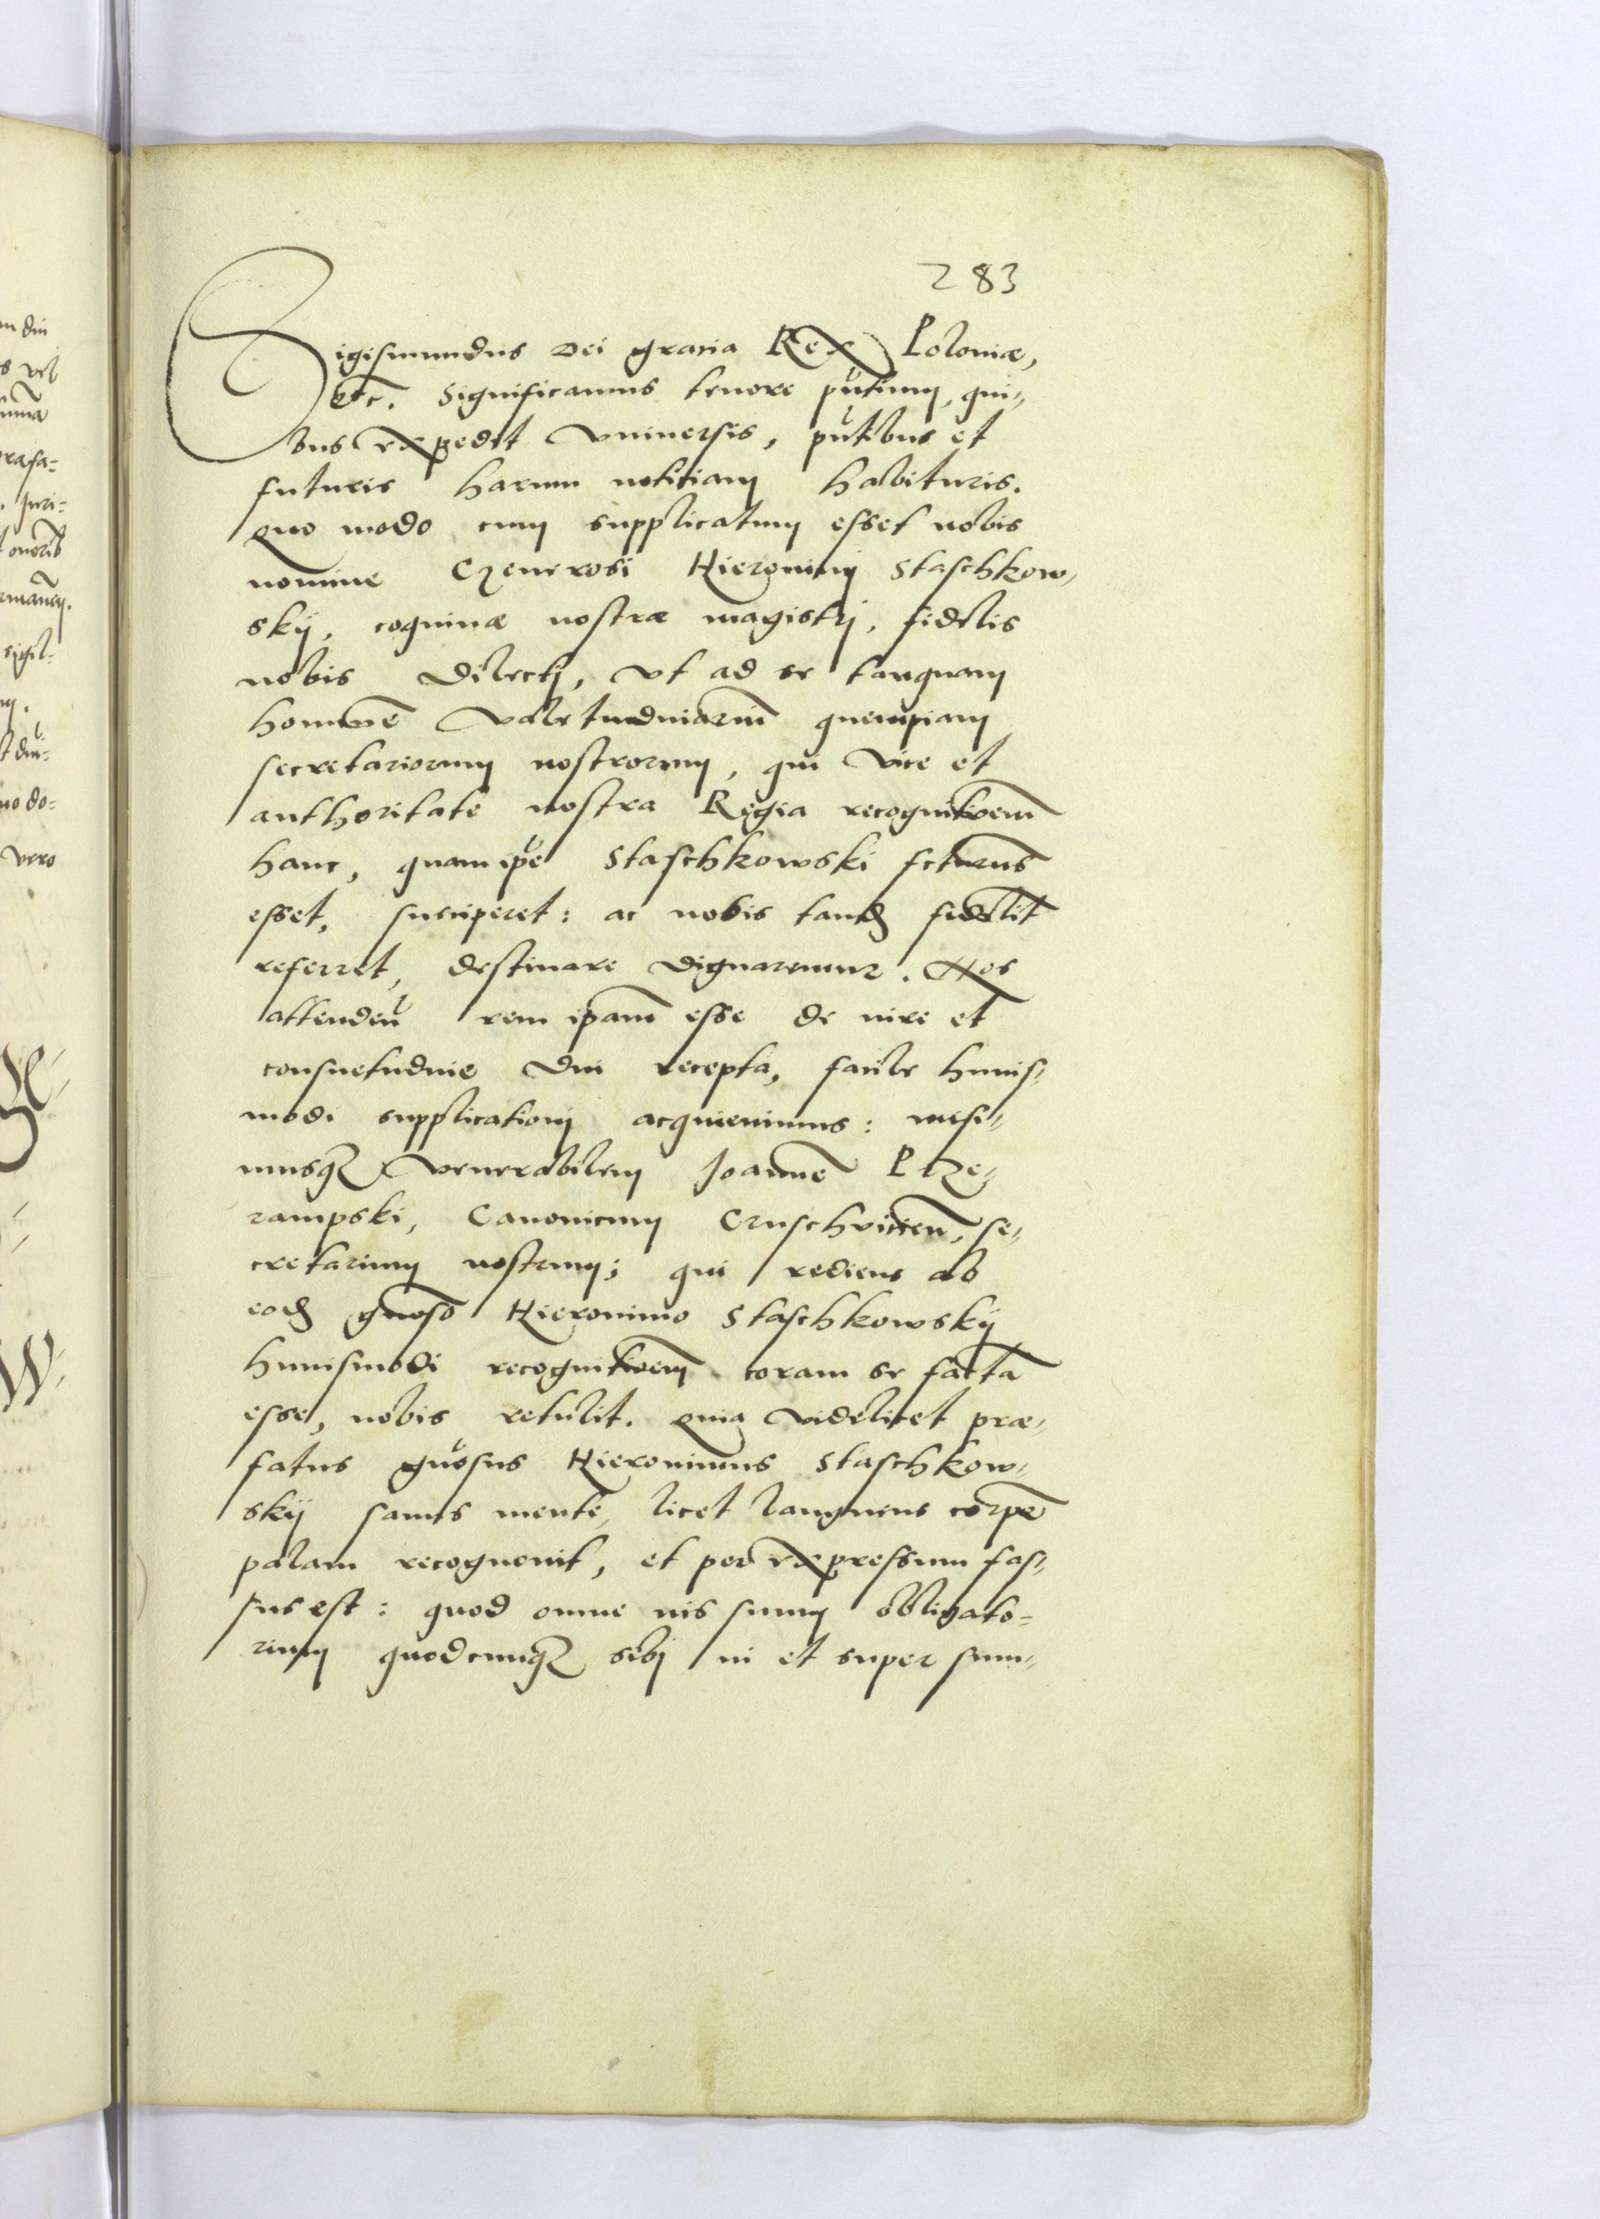 283
Sigismundus Dei gratia Rex Poloniæ,
etc. Significamus tenore pñtium, qui-
bus expedit vniuersis, pñtibus et
futuris harum notitiam habituris.
Quo modo cum supplicatum esset nobis
nomine Generosi Hieronimj Staschkow-
skÿ, coquinæ nostræ magistrj, fidelis
nobis dilectj, vt ad se tanquam
hominē valetudinariū quempiam
secretariorum nostrorum, qui vice et
authoritate nostra Regia recognitioem̄
hanc, quam ipe Staschkowski fcturus
esset, susciperet: ac nobis tandē fidelit
referret, destinare dignaremur. Nos
attendeñ rem ipam̄ esse de iure et
consuetudine diu recepta, facile huius-
modi supplicationj acquieuimus: misi-
musq̃ venerabilem Joannē Prze-
rampski, Canonicum Cruschviceñ, se-
cretarium nostrum; qui rediens ab
eodē gnōso Hieronimo Staschkowskÿ
huiusmodi recognitioem̄ coram se factā
esse, nobis retulit. Quia videlicet præ-
fatus gnōsus Hieronimus Staschkow-
skÿ sanus mente, licet languens corpē
palam recognouit, et per expressum fas-
sus est: quod omne ius suum obligato-
rium quodcumq̃ sibj in et super sum-
an diu
s vel
umma
rafa-
. Juri-
t oneris
rmaneñ.
sigil-
no do-
vero
W-